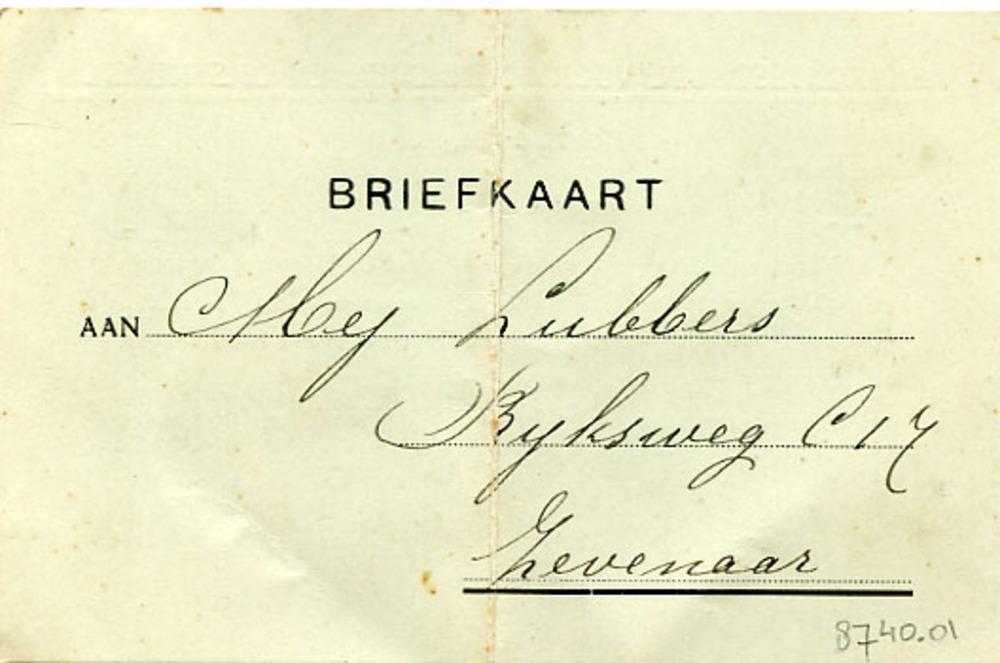 BRIEFKAART
AAN Mej Lubbers
Ryksweg C 17
Zevenaar
8740.01